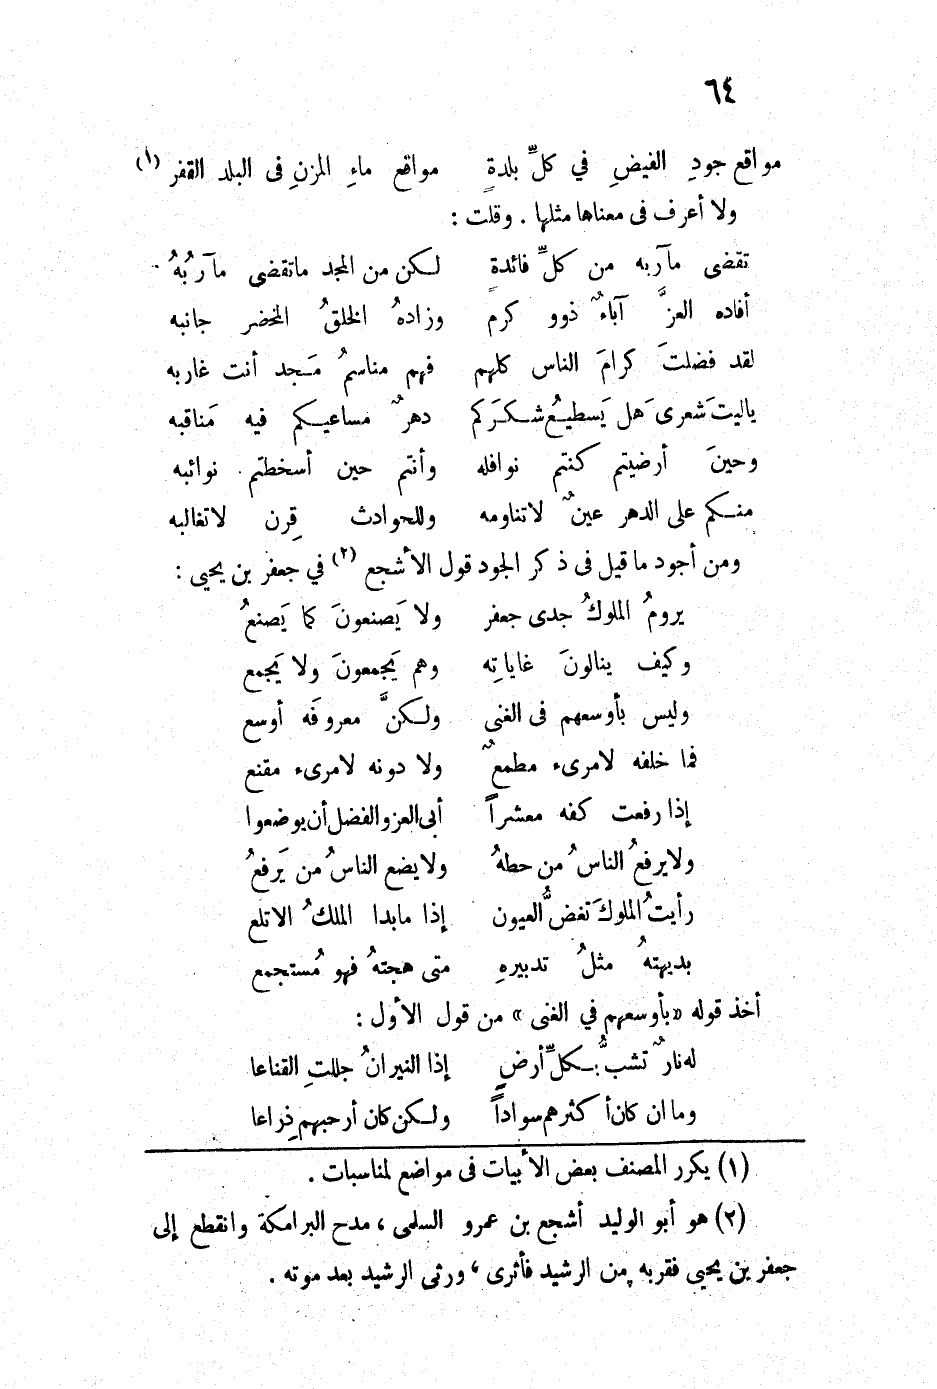 ٦٤
مواقع جودِ الفيضِ في كلِّ بلدةٍ    مواقع ماءِ المزنِ فى البلد القفر (١)
ولا أعرف فى معناها مثلها . وقلت :
تقضى مآربه من كلِّ فائدةٍ    لكن من المجد ماتقضى مآرُبُهُ
أفاده العزَّ آباءٌ ذوو كرم    وزادهُ الخلقُ المخضر جانبه
لقد فضلتَ كرامَ الناس كلهم    فهم مناسمُ مَجد أنت غاربه
ياليتَ شعرى هَل يَسطيعُ شكرَكم    دهرٌ مساعيكم فيه مَناقبه
وحينَ أرضيتم كنتم نوافله    وأنتم حين أسخطتم نوائبه
منكم على الدهر عينٌ لاتناومه    وللحوادث قِرن لاتغالبه
ومن أجود ماقيل فى ذكر الجود قول الأشجع (٢) في جعفر بن يحيى :
يرومُ الملوكُ جدى جعفر    ولا يَصنعونَ كما يَصنعُ
وكيف ينالونَ غاياتِه    وهم يَجمعونَ ولا يَجمع
وليس بأوسعهم فى الغنى    ولكنَّ معروفَه أوسع
فما خلفه لامرىء مطمعٌ    ولا دونه لامرىء مقنع
إذا رفعت كفه معشراً    أبى العز والفضل أن يوضعوا
ولايرفعُ الناسُ من حطهُ    ولايضع الناسُ من يَرفعُ
رأيتُ الملوكَ تغضُّ العيون    إذا مابدا الملكُ الاتلع
بديهتهُ مثلُ تدبيرهِ    متى هجتهُ فهو مُستجمع
أخذ قوله «بأوسعهم في الغنى» من قول الأول :
له نارٌ تشبُّ بكلِّ أرضٍ    إذا النيرانُ جللتِ القناعا
وما ان كان أكثرهم سواداً    ولكن كان أرحبهم ذِراعا
(١) يكرر المصنف بعض الأبيات فى مواضع لمناسبات .
(٢) هو أبو الوليد أشجع بن عمرو السلمى ، مدح البرامكة وانقطع إلى
جعفر بن يحيى فقربه من الرشيد فأثرى ، ورثى الرشيد بعد موته .